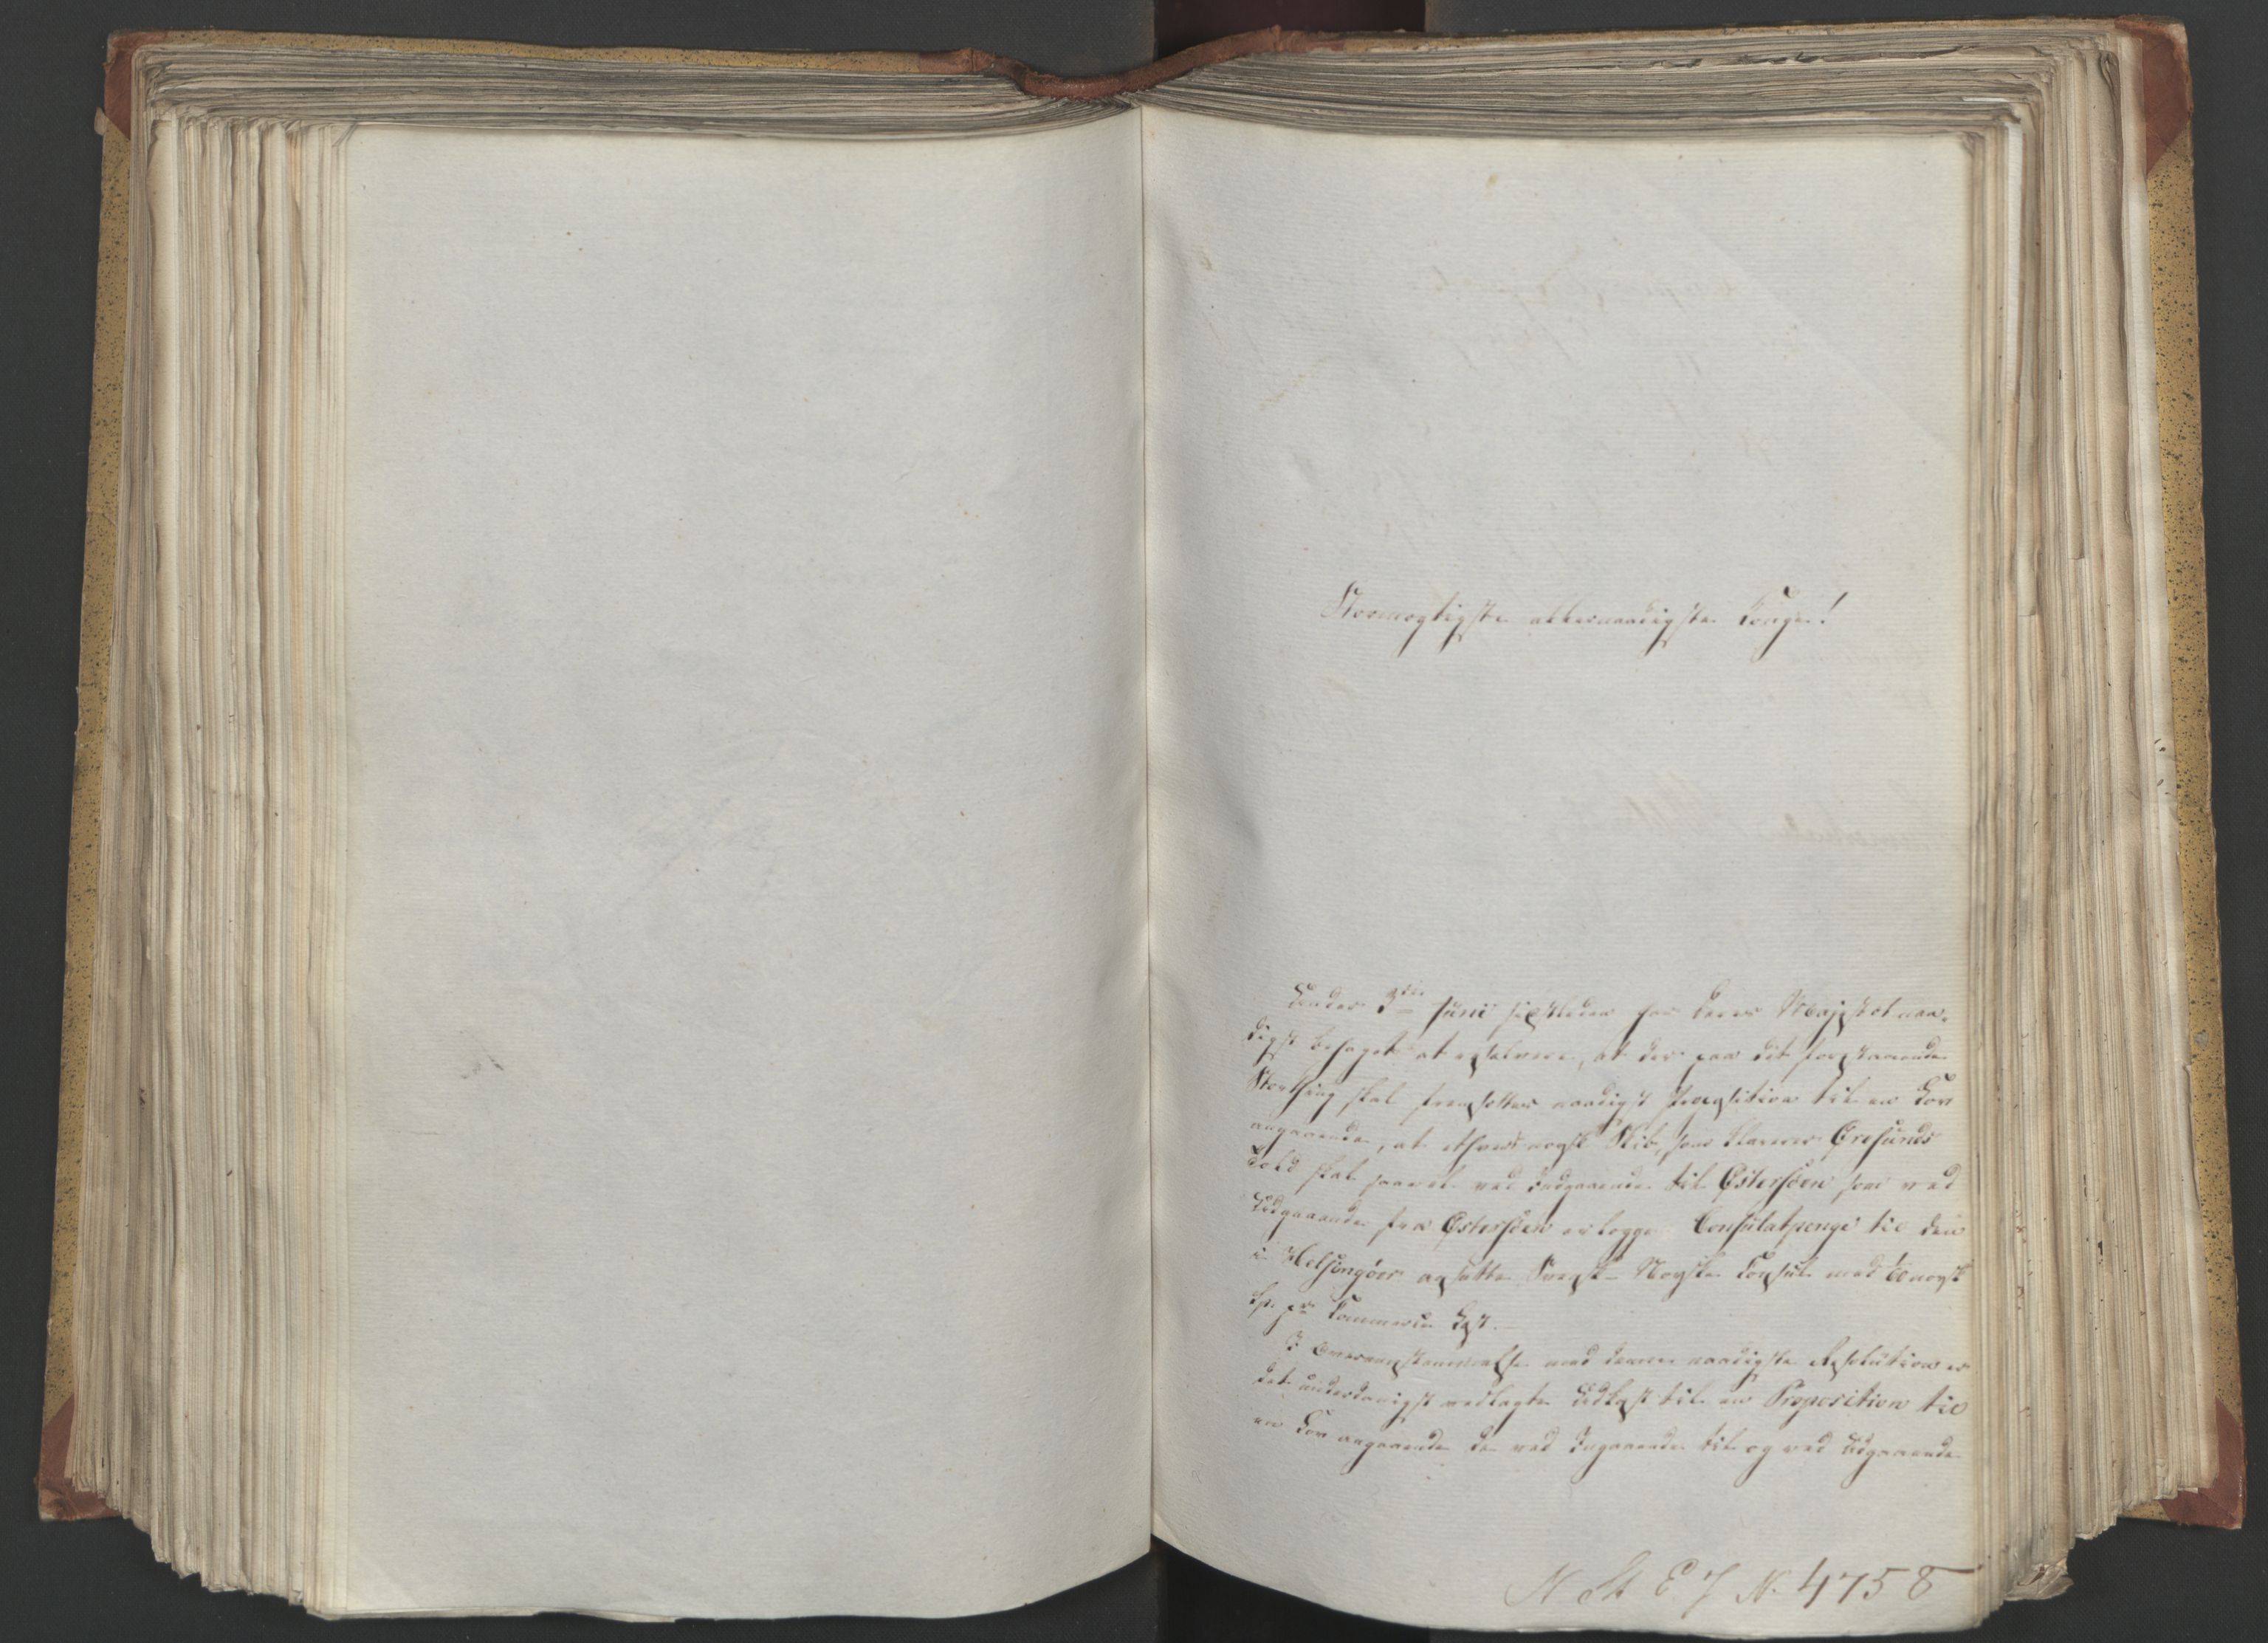 Stormægtigste allernaadigste Konge!
Under 3die Junii sidstleden har Deres Majestæt naa-
digst behaget at resolvere, at der paa det forestaaende
Storthing skal fremsættes naadigst Proposition til en Lov
angaaende, at ethvert norsk Skib, som klarerer Øresunds
Told skal saavel ved Indgaaende til Østersøen som ved
Udgaaende fra Østersøen erlægge Consulatpenge til den
i Helsingöer ansatte Svensk-Norske Consul med norsk
Sp. pr Commerce Læst.
I Overensstemmelse med denne naadigste Resolution er
det underdanigst vedlagte Udkast til en Proposition til
en Lov angaaende de ved Indgaaende til og ved Udgaaende
N St E J N. 4758